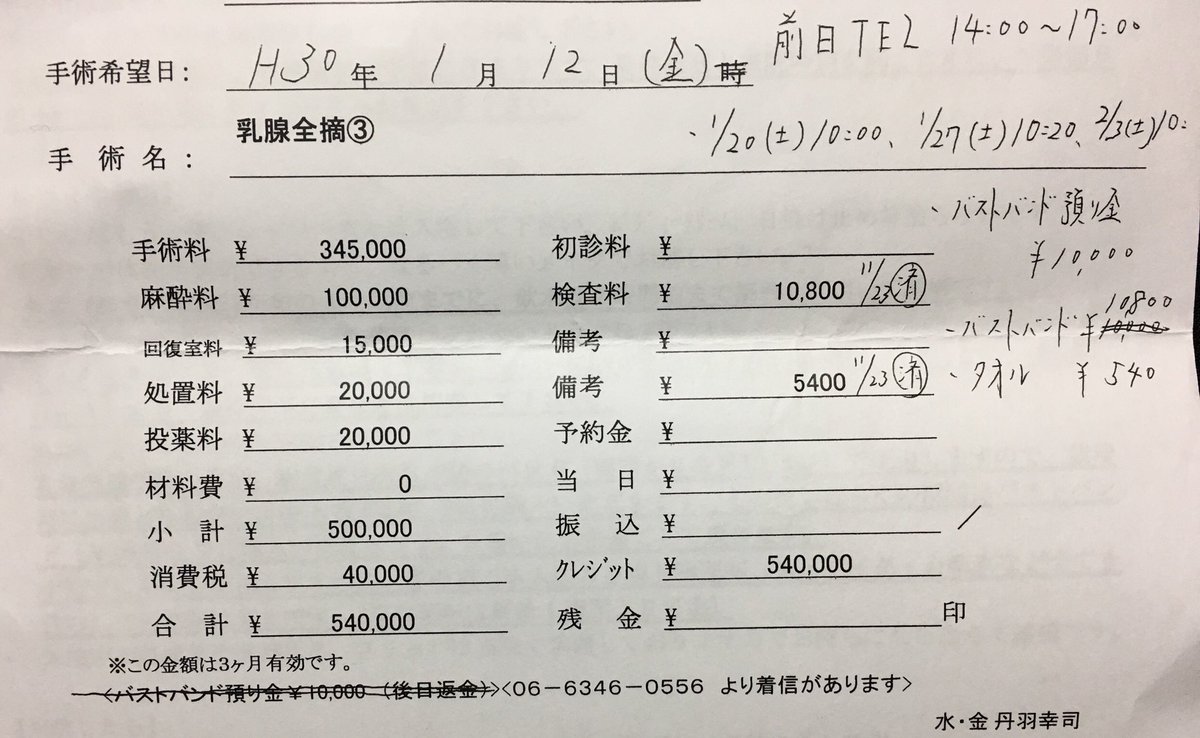 前日TEL 14:00〜17:00
手術希望日: H30年 1月 12日(金)時
乳腺全摘③
手術名:
・1/20(土)10:00、1/27(土)10:20、2/3(土)10:
・バストバンド預り金
¥10,000
手術料 ¥ 345,000 初診料 ¥
麻酔料 ¥ 100,000 検査料 ¥ 10,800 11/23 済
10,800
・バストバンド ¥10,000
回復室料 ¥ 15,000 備考 ¥
処置料 ¥ 20,000 備考 ¥ 5400 11/23 済
・タオル ¥540
投薬料 ¥ 20,000 予約金 ¥
材料費 ¥ 0 当日 ¥
小計 ¥ 500,000 振込 ¥ /
消費税 ¥ 40,000 クレジット ¥ 540,000
合計 ¥ 540,000 残金 ¥ 印
※この金額は3ヶ月有効です。
<バストバンド預り金¥10,000 (後日返金)><06-6346-0556 より着信があります>
水・金 丹羽幸司